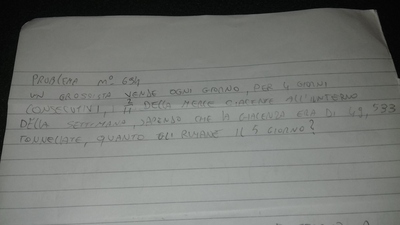 PROBLEMA N° 694
UN GROSSISTA VENDE OGNI GIORNO, PER 4 GIORNI
CONSECUTIVI, DELLA MERCE GIACENTE ALL'INTERNO
DELLA SETTIMANA, SAPENDO CHE LA GIACENZA ERA DI 49,533
TONNELLATE, QUANTO GLI RIMANE IL 5 GIORNO?